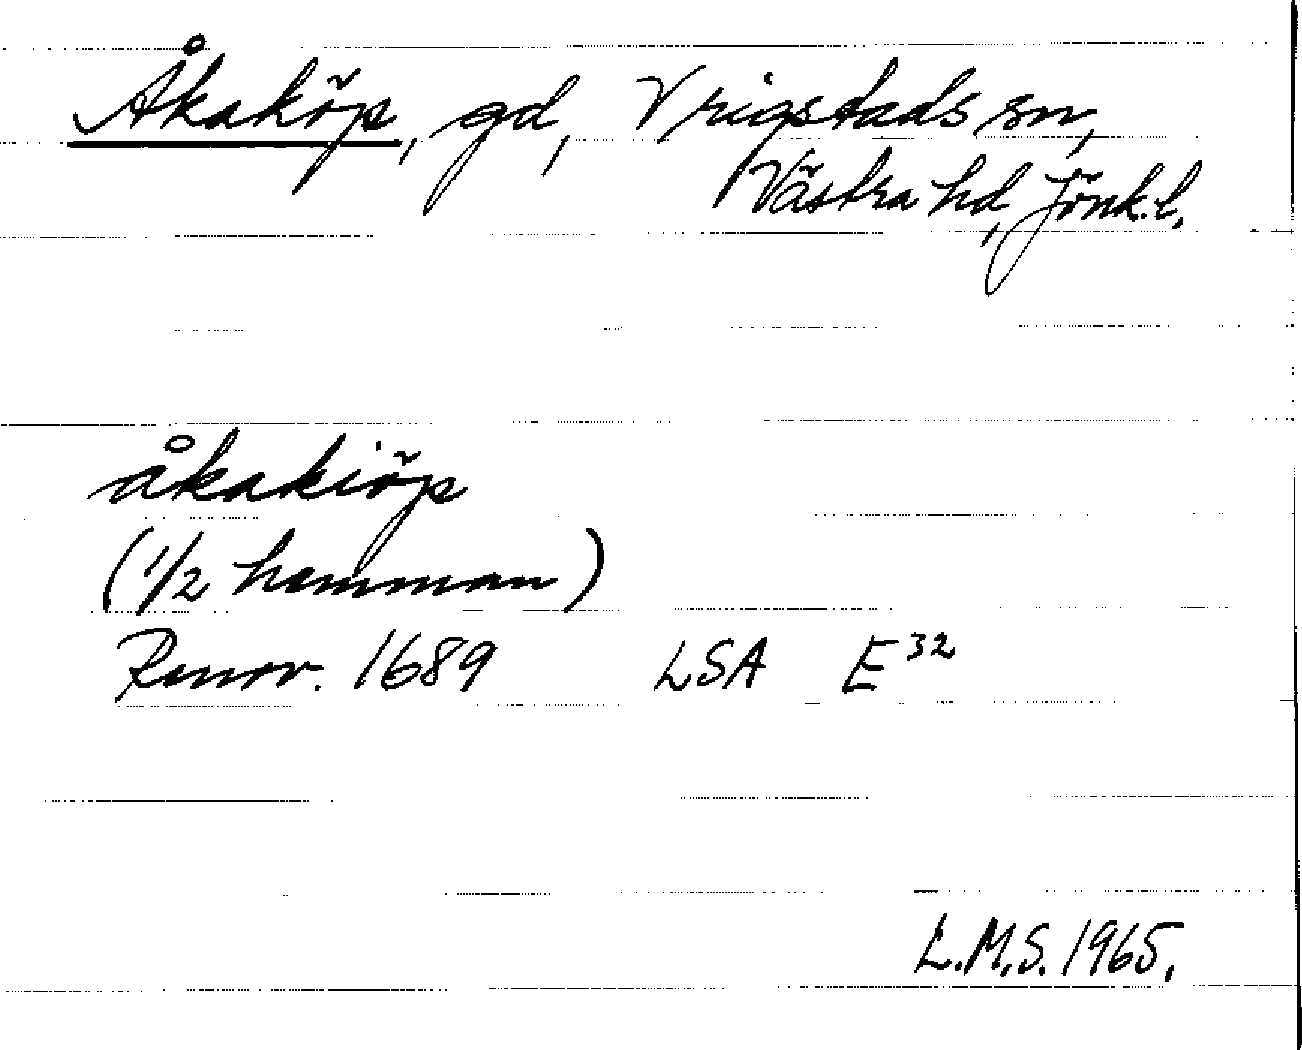 Åkaköp, gd, Vrigstads sn,
Västra hd, Jönk. l.
åkakiöp
(1/2 hemman)
Renov. 1689 LSA E 32
L.M.S. 1965.